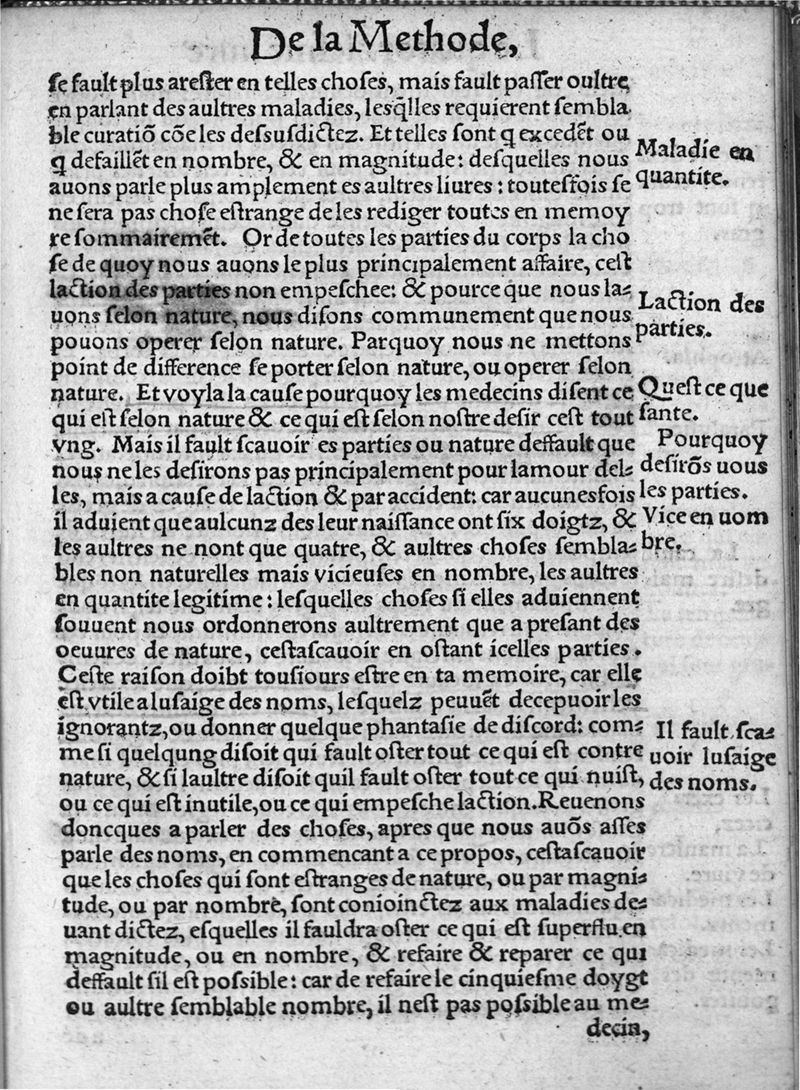 De la Methode,
ſe fault plus areſter en telles choſes, mais fault paſſer oultre
en parlant des aultres maladies, leſq̃lles requierent ſembla
ble curatiõ cõe les deſſuſdictez. Et telles ſont q excedẽt ou
q defaillẽt en nombre, & en magnitude: deſquelles nous
auons parle plus amplement es aultres liures: touteſſois ſe
ne ſera pas choſe eſtrange de les rediger toutes en memoy
re ſommairemẽt. Or de toutes les parties du corps la cho
ſe de quoy nous auons le plus principalement affaire, ceſt
laction des parties non empeſchee: & pource que nous la⸗
uons ſelon nature, nous diſons communement que nous
pouons operer ſelon nature. Parquoy nous ne mettons
point de difference ſe porter ſelon nature, ou operer ſelon
nature. Et voyla la cauſe pourquoy les medecins diſent ce
qui eſt ſelon nature & ce qui eſt ſelon noſtre deſir ceſt tout
vng. Mais il fault ſcauoir es parties ou nature deffault que
nous ne les deſirons pas principalement pour lamour del⸗
les, mais a cauſe de laction & par accident: car aucunesfois
il aduient que aulcunz des leur naiſſance ont ſix doigtz, &
les aultres ne nont que quatre, & aultres choſes ſembla⸗
bles non naturelles mais vicieuſes en nombre, les aultres
en quantite legitime: leſquelles choſes ſi elles aduiennent
ſouuent nous ordonnerons aultrement que a preſant des
oeuures de nature, ceſtaſcauoir en oſtant icelles parties.
Ceſte raiſon doibt touſiours eſtre en ta memoire, car elle
eſt vtile a luſaige des noms, leſquelz peuuẽt decepuoir les
ignorantz, ou donner quelque phantaſie de diſcord: com⸗
me ſi quelqung diſoit qui fault oſter tout ce qui eſt contre
nature, & ſi laultre diſoit quil fault oſter tout ce qui nuiſt,
ou ce qui eſt inutile, ou ce qui empeſche laction. Reuenons
doncques a parler des choſes, apres que nous auõs aſſes
parle des noms, en commencant a ce propos, ceſtaſcauoir
que les choſes qui ſont eſtranges de nature, ou par magni⸗
tude, ou par nombre, ſont conioinctez aux maladies de⸗
uant dictez, eſquelles il fauldra oſter ce qui eſt ſuperflu en
magnitude, ou en nombre, & refaire & reparer ce qui
deffault ſil eſt poſſible: car de refaire le cinquieſme doygt
ou aultre ſemblable nombre, il neſt pas poſſible au me⸗
decin,
Maladie en
quantite.
Laction des
parties.
Queſt ce que
ſante.
Pourquoy
deſirõs uous
les parties.
Vice en uom
bre.
Il fault ſca⸗
uoir luſaige
des noms.